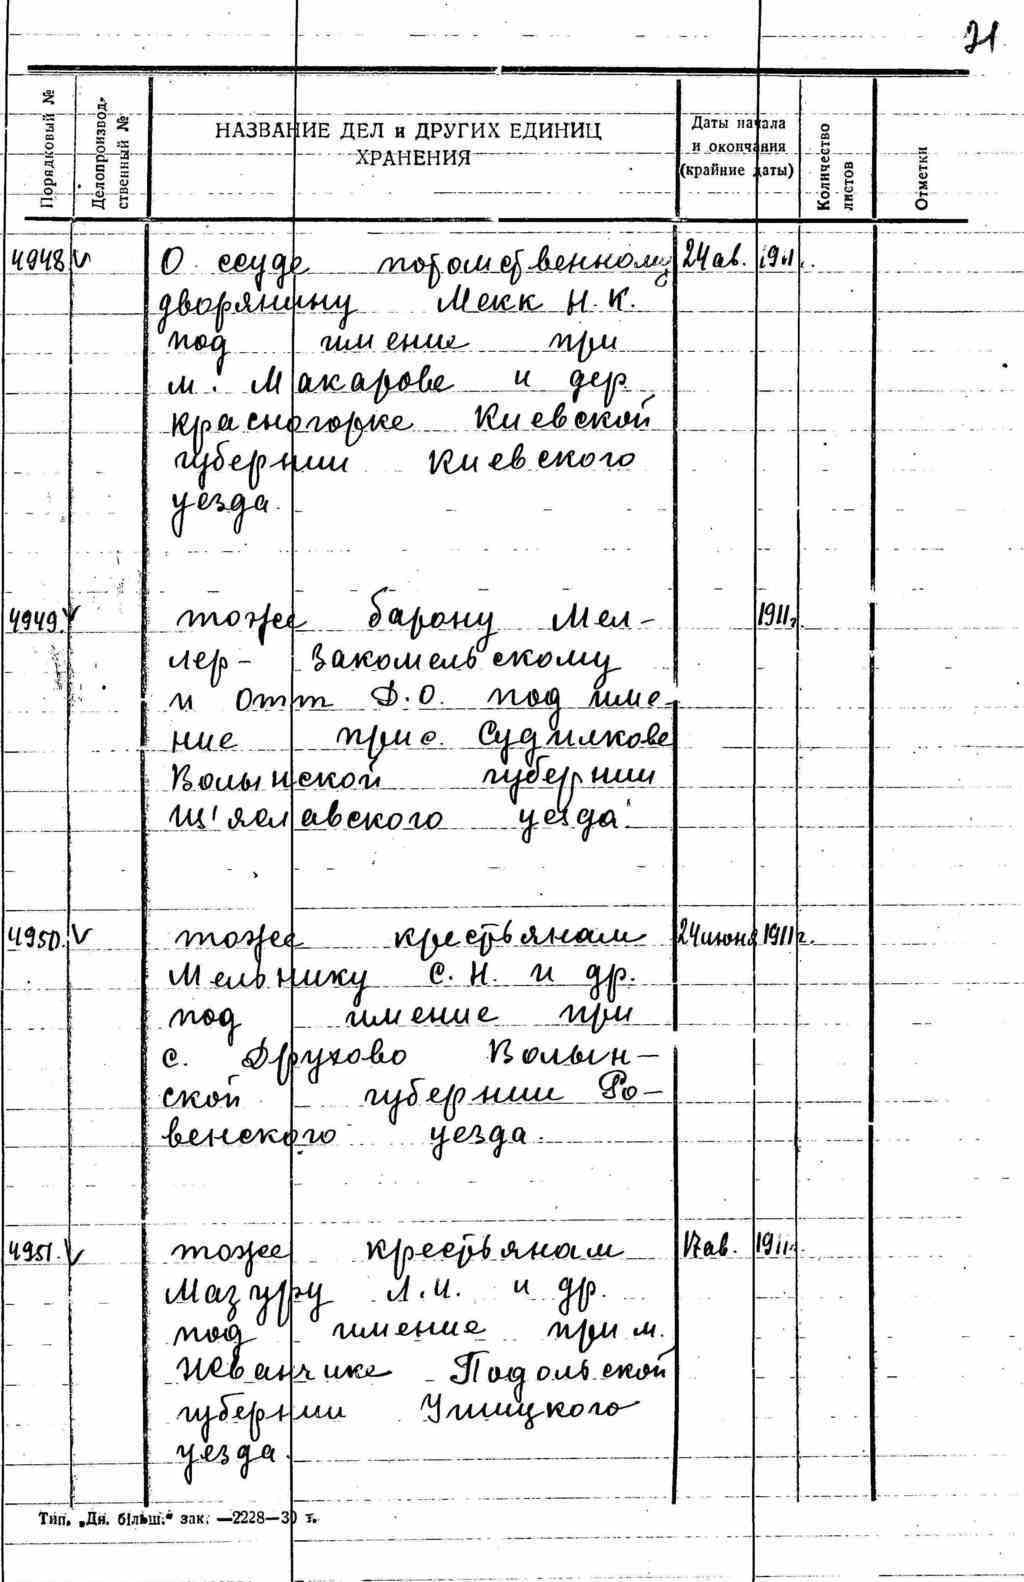 21
Порядковый №
Делопроизвод-
ственный №
НАЗВАНИЕ ДЕЛ и ДРУГИХ ЕДИНИЦ
ХРАНЕНИЯ
Даты начала
и окончания
(крайние даты)
Количество
листов
Отметки
4948 V О ссуде потомственному 24 ав. 1911.
дворянину Мекк Н. К.
под имение при
м. Макарове и дер.
Красногорке Киевской
губернии Киевского
уезда.
4949. V тоже барону Мел- 1911г.
лер- Закомельскому
и Отт Д.О. под име-
ние при с. Судилкове
Волынской губернии
уезда.
4950. V тоже крестьянам 24 июня 1911 г.
Мельнику С. Н. и др.
под имение при
с. Друхово Волын-
ской губернии Ро-
венского уезда.
4951. V тоже крестьянам 17 ав. 1911г.
Мазуру Л.И. и др.
под имение при м.
Подольской
губернии Ушицкого
уезда.
Тип. „Дн. більш." зак. —2228—30 т.